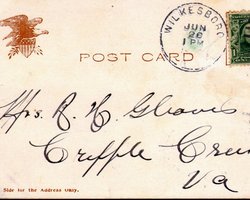 WILKESBORO
JUN
26
1 PM
POST CARD
1
Mrs. R. H. Gleaves
Cripple Creek
Va
Side for the Address Only.